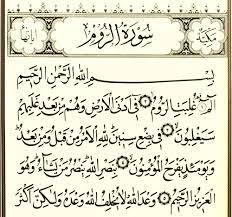 سُورَةُ الرُّومِ
بِسْمِ اللهِ الرَّحْمٰنِ الرَّحِيمِ
الم ۝ غُلِبَتِ الرُّومُ ۝ فِي أَدْنَى الْأَرْضِ وَهُمْ مِنْ بَعْدِ غَلَبِهِمْ
سَيَغْلِبُونَ ۝ فِي بِضْعِ سِنِينَ لِلهِ الْأَمْرُ مِنْ قَبْلُ وَمِنْ بَعْدُ
وَيَوْمَئِذٍ يَفْرَحُ الْمُؤْمِنُونَ ۝ بِنَصْرِ اللهِ يَنْصُرُ مَنْ يَشَاءُ وَهُوَ
الْعَزِيزُ الرَّحِيمُ ۝ وَعْدَ اللهِ لَا يُخْلِفُ اللهُ وَعْدَهُ وَلٰكِنَّ أَكْثَرَ